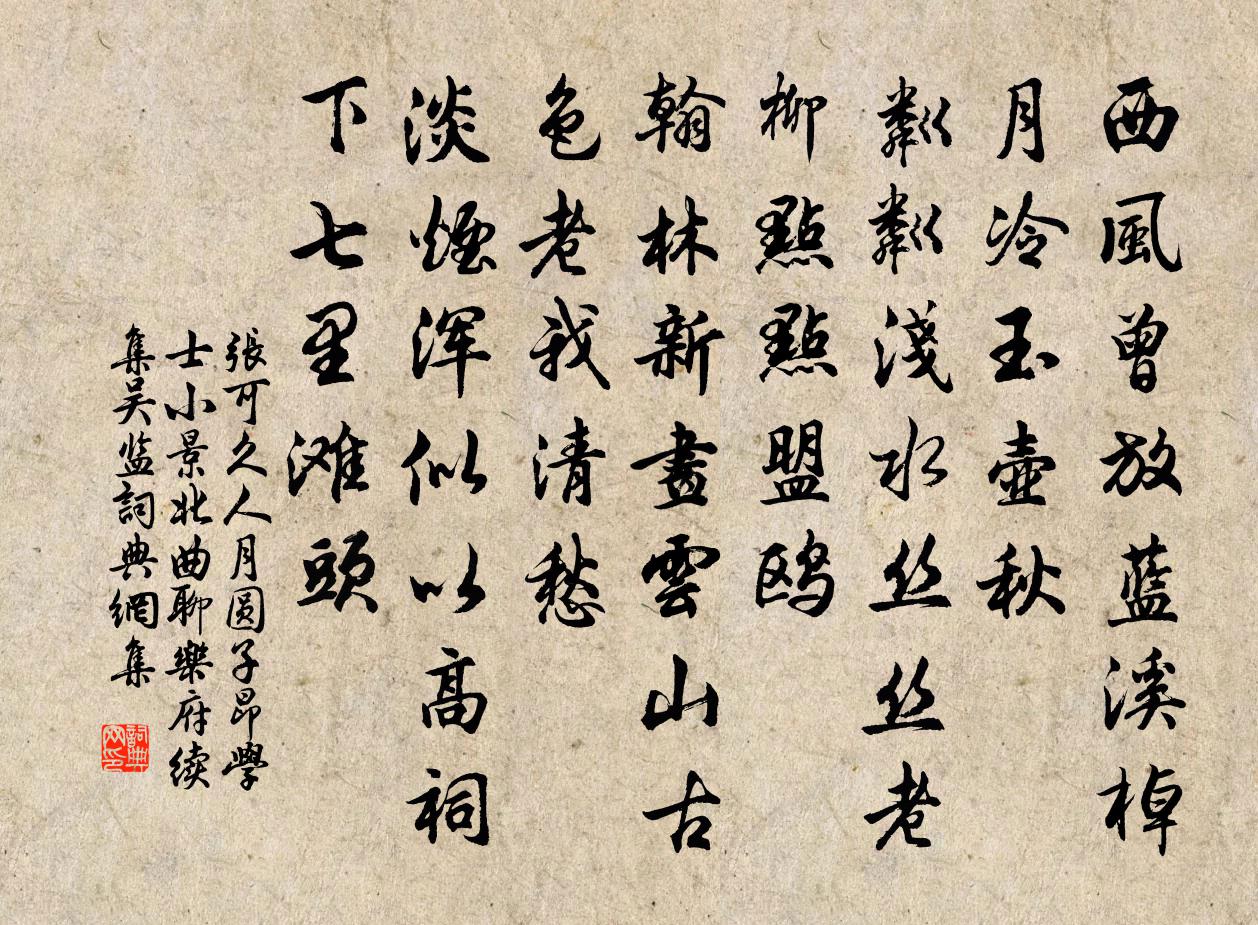 西風曾放藍溪棹
月冷玉壺秋
粼粼淺水丝丝老
柳點點盟鸥
翰林新畫雲山古
色老我清愁
淡煙浑似以高祠
下七里滩頭
張可久人月圆子昂學
士小景北曲聊樂府续
集吴监詞典網集
詞典网印